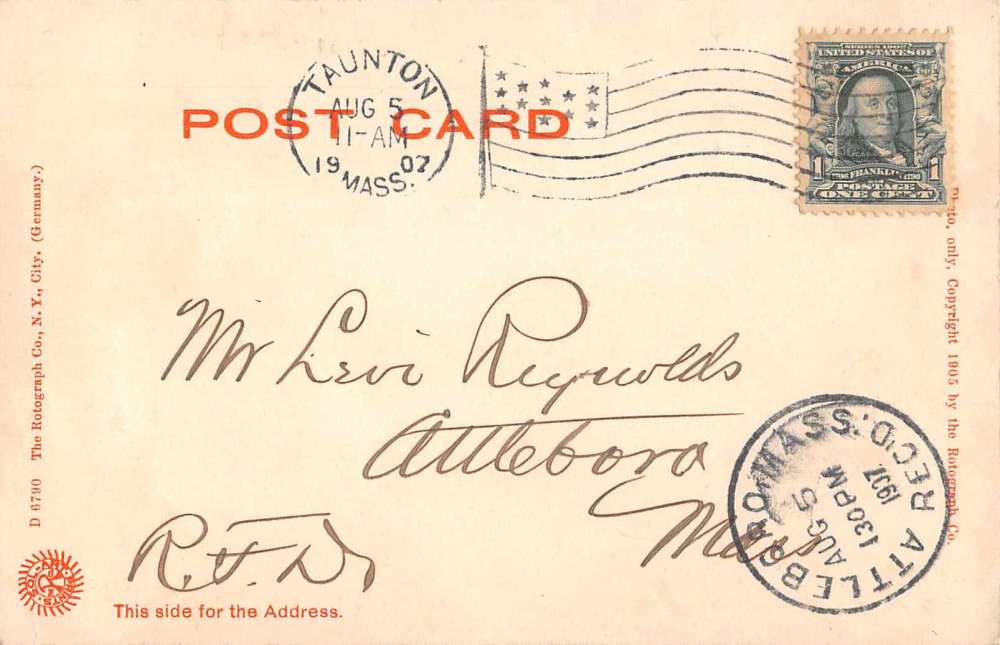 POST CARD
TAUNTON
AUG 5
11-AM
1907
MASS.
SERIES 1902
UNITED STATES OF
AMERICA
1 1
1706 FRANKLIN 1790
POSTAGE
ONE CENT
D 6790 The Rotograph Co., N. Y., City. (Germany.)
Photo, only, Copyright 1905 by the Rotograph Co.
Mr Levi Reynolds
Attleboro
Mass
R. F. D.
ATTLEBORO, MASS. REC'D.
AUG 5
130PM
1907.
SOL-ART PRINTS.
This side for the Address.